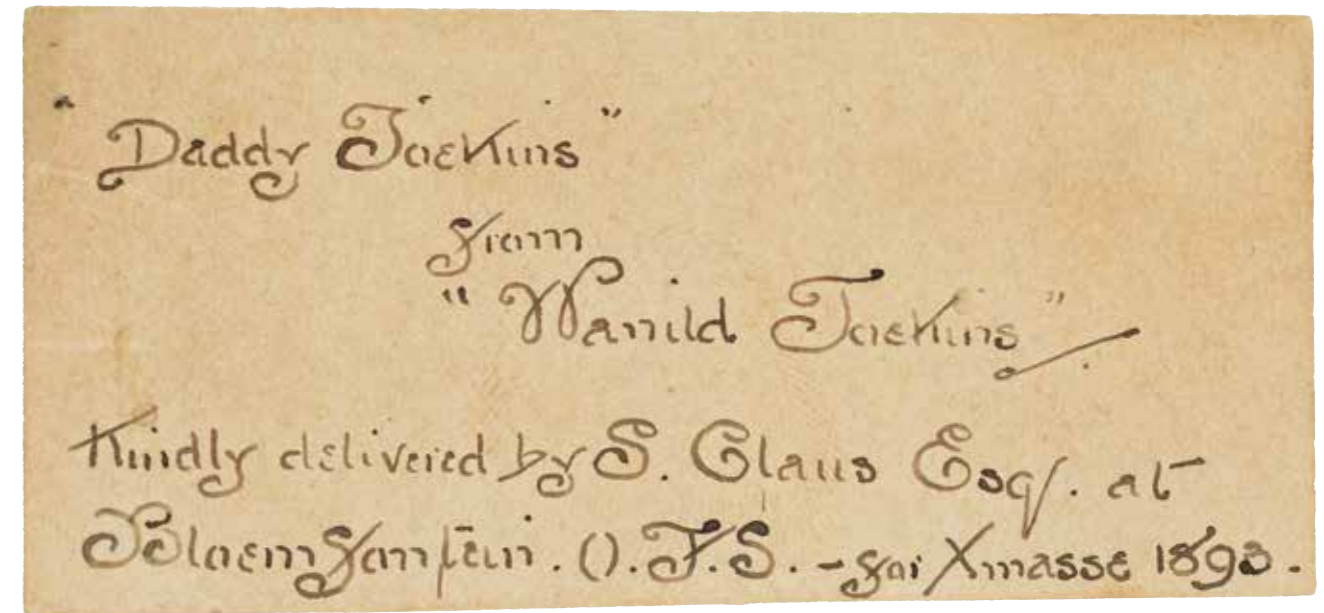 "Daddy Toekins"
from
"Wanild Toekins"
Kindly delivered by S. Claus Esq/. at
Bloemfontein. O.F.S. - for Xmasse 1893.